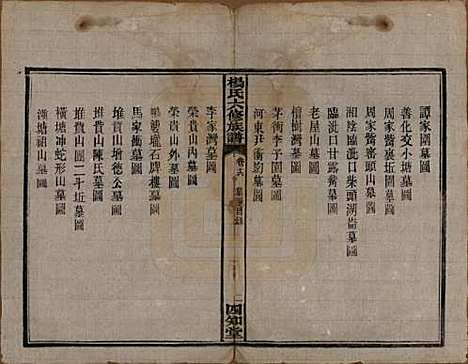 譚家園墓圖
善化交小塘墓圖
周家嘴裏坵圖墓圖
周家嘴窑頭山墓圖
湘陰臨泚口柴頭湖崙墓圖
臨泚口甘露嘴墓圖
老屋山墓圖
檀樹灣墓圖
茅衝李子園墓圖
河東尹衝約墓圖
楊氏六修族譜
卷六
墓
目錄
四知堂
李家灣墓圖
榮貴山內墓圖
榮貴山外墓圖
壠石牌樓墓圖
馬家衝墓圖
堆貴山增德公墓圖
堆貴山陳氏墓圖
山圍二斗坵墓圖
橫塘冲蛇形山墓圖
漢塘祖山墓圖